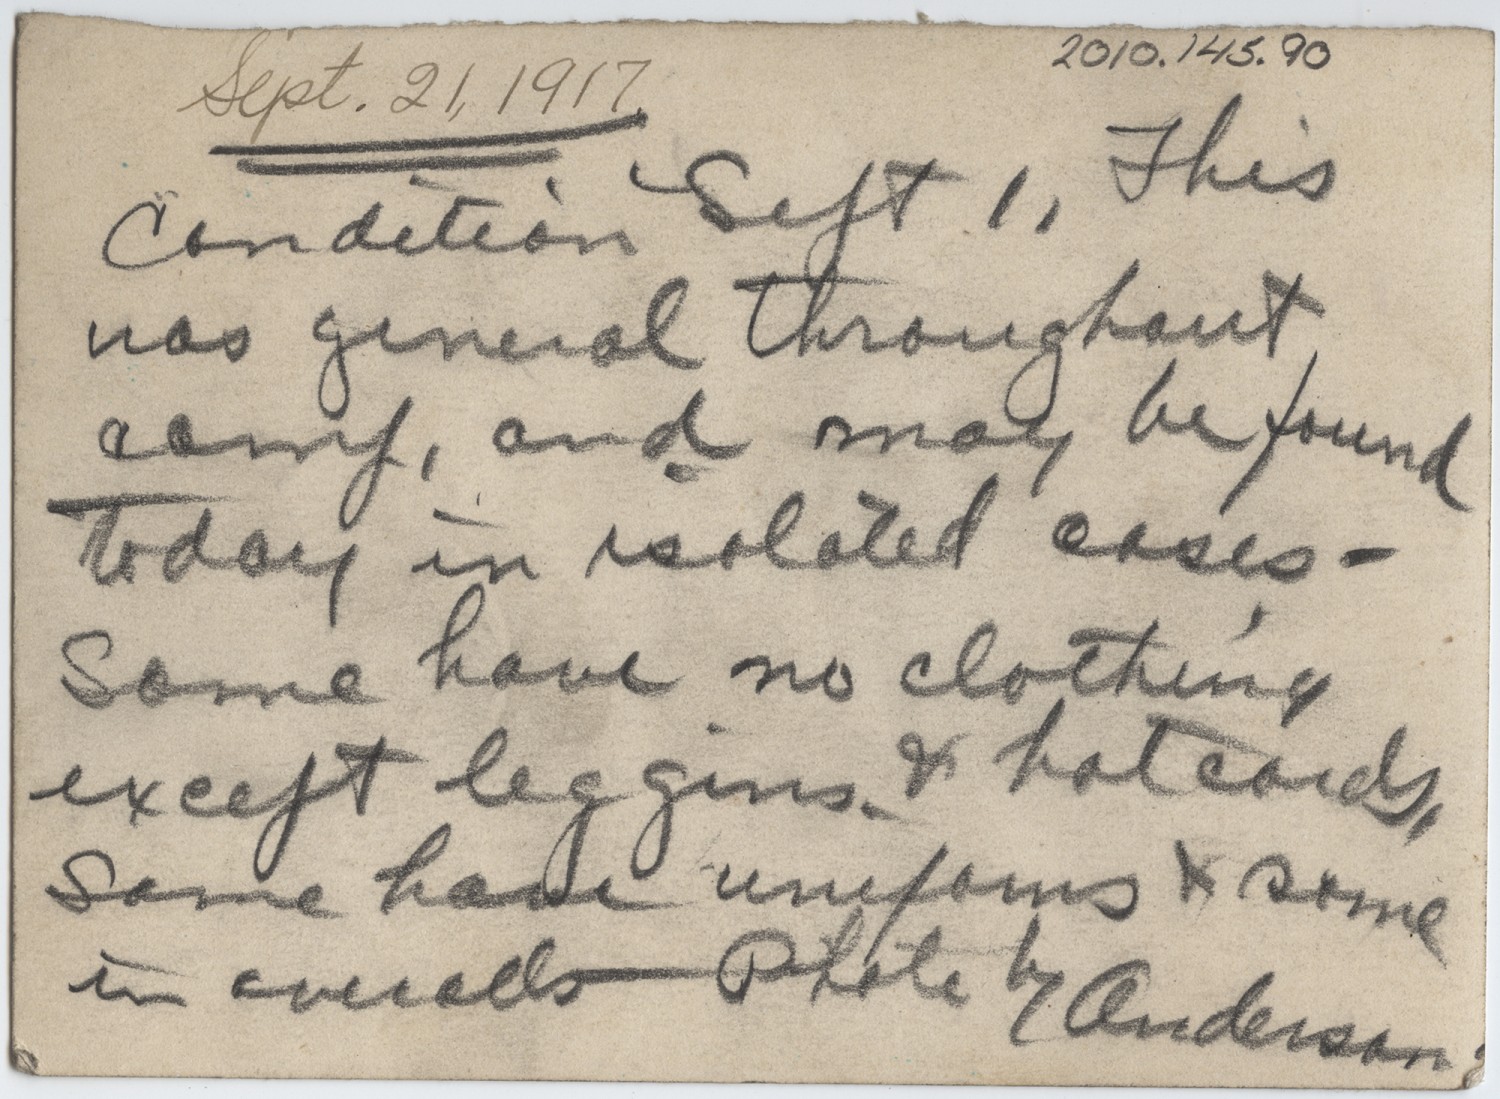 Sept. 21, 1917.
2010.145.90
Condition Sept 1, This
was general throughout
camp, and may be found
today in isolated cases-
Some have no clothing
except leggins. & hatcords,
Some have uniforms & some
in overalls — Photo by Anderson